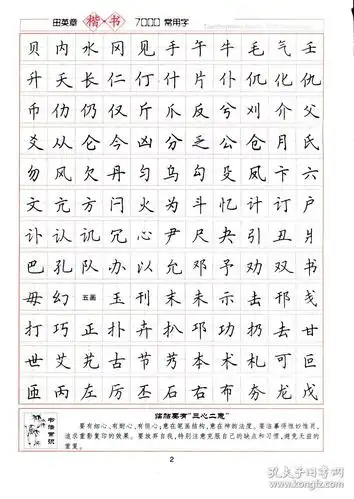 田英章 楷·书 7000 常用字
贝 内 水 冈 见 手 午 牛 毛 气 壬
升 夭 长 仁 仃 什 片 仆 仉 化 仇
币 仂 仍 仅 斤 爪 反 兮 刈 介 父
爻 从 仑 今 凶 分 乏 公 仓 月 氏
勿 风 欠 丹 匀 乌 勾 殳 凤 卞 六
文 亢 方 闩 火 为 斗 忆 计 订 户
讣 认 讥 冗 心 尹 尺 夬 引 丑 爿
巴 孔 队 办 以 允 邓 予 劝 双 书
毋 幻 五画 玉 刊 末 未 示 击 邗 戋
打 巧 正 扑 卉 扒 邛 功 扔 去 甘
世 艾 艽 古 节 艿 本 术 札 可 叵
匝 丙 左 厉 丕 石 右 布 夯 龙 戊
书法常识
临帖要有“三心二意”
要有细心、有耐心、有恒心;意在笔画结构,意在神韵法度。要临摹得惟妙惟肖,
追求重影复印的效果。要放弃自我,特别注意克服自己的缺点和习惯,避免无益的
重复。
2
孔夫子旧书网